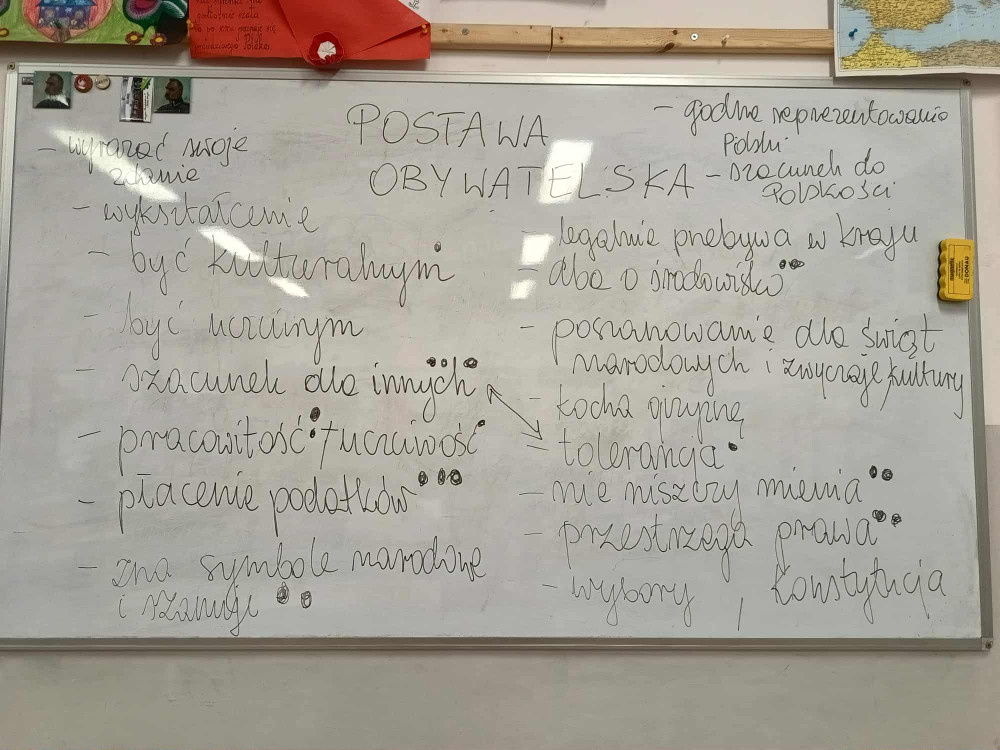 POSTAWA
OBYWATELSKA
- wyrazać swoje
zdanie
- wykształcenie
- być kulturalnym
- być uczciwym
- szacunek dla innych
- pracowitość / uczciwość
- płacenie podatków
- zna symbole narodowe
i szanuje
- godne reprezentowanie
Polski
- szacunek do
Polskości
- legalnie przebywa w kraju
- dba o środowisko
- poszanowanie dla świąt
narodowych i zwyczaje, kultury
- kocha ojczyznę
- tolerancja
- nie niszczy mienia
- przestrzega prawa
- wybory, Konstytucja
DONAU